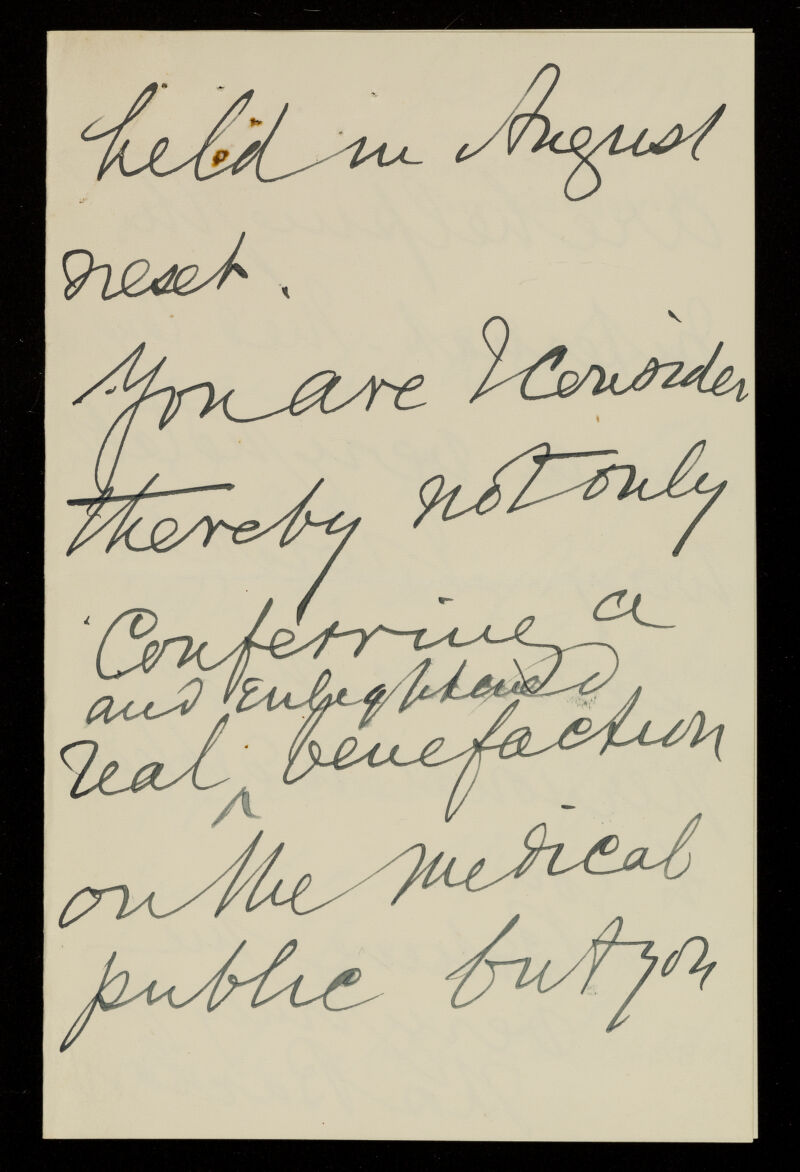 held in August
next.
You are I consider
thereby not only
Conferring a
and Enlightened
real ^ benefaction
on the medical
public but you